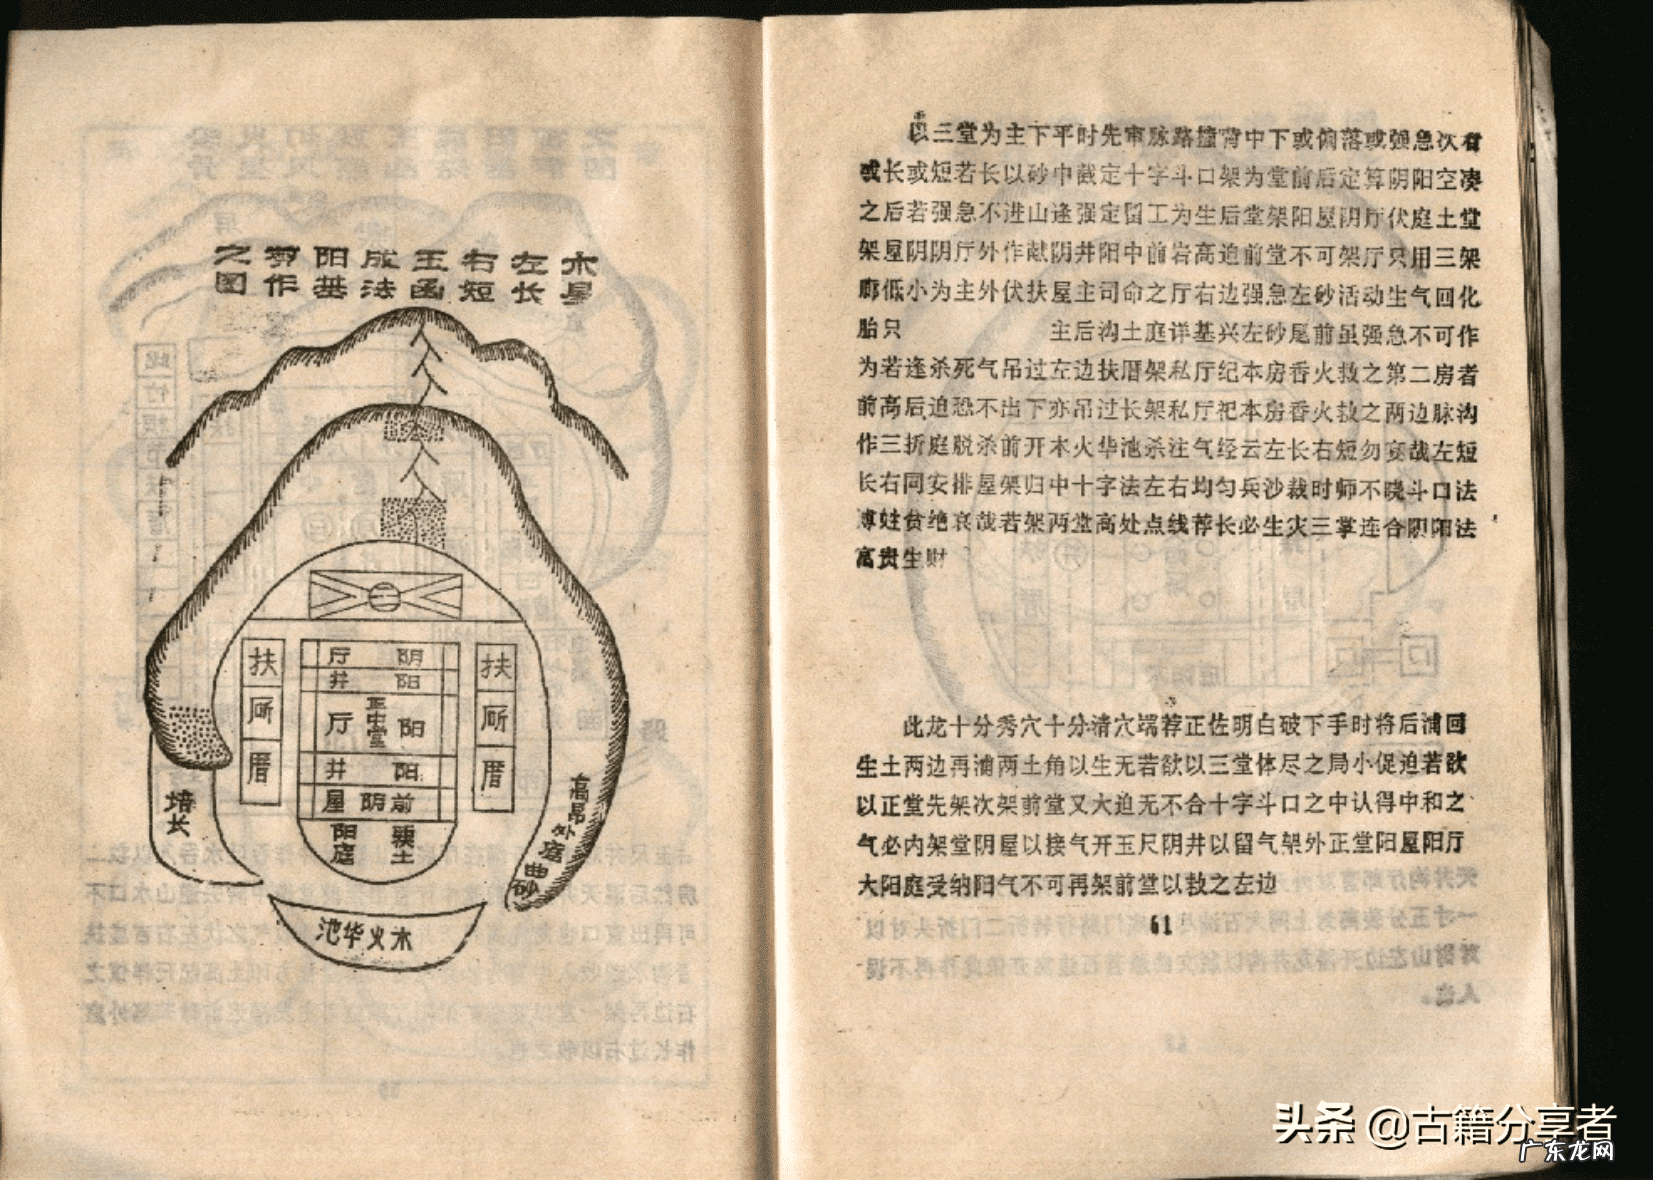 木星
左长
右短
玉函
成法
阳基
剪作
之图
扶厕厝
阴厅
阳井
阳厅
正中堂
阳井
前阴屋
阳庭
土
扶厕厝
培长
高昂外庭曲砂
木火华池
以三堂为主下平时先审脉路撞背中下或俯落或强急次看
或长或短若长以砂中截定十字斗口架为堂前后定算阴阳空凑
之后若强急不进山逢强定留工为生后堂架阳屋阴厅伏庭土堂
架屋阴阴厅外作献阴井阳中前岩高迫前堂不可架厅只用三架
廊低小为主外伏扶屋主司命之厅右边强急左砂活动生气回化
胎只 主后沟土庭详基兴左砂尾前虽强急不可作
为若逢杀死气吊过左边扶厝架私厅纪本房香火救之第二房者
前高后迫恐不出下亦吊过长架私厅祀本房香火救之两边脉沟
作三折庭脱杀前开木火华池杀注气经云左长右短勿哉左短
长右同安排屋架归中十字法左右均匀兵沙裁时师不晓斗口法
贫绝哀哉若架两堂高处点线荐长必生灾三掌连合阴阳法
富贵生财
此龙十分秀穴十分清穴端荐正佐明白破下手时将后浦回
生土两边再浦两土角以生无若欲以三堂体尽之局小促迫若欲
以正堂先架次架前堂又大迫无不合十字斗口之中认得中和之
气必内架堂阴屋以接气开玉尺阴井以留气架外正堂阳屋阳厅
大阳庭受纳阳气不可再架前堂以救之左边
61
头条 @古籍分享者
广东龙网